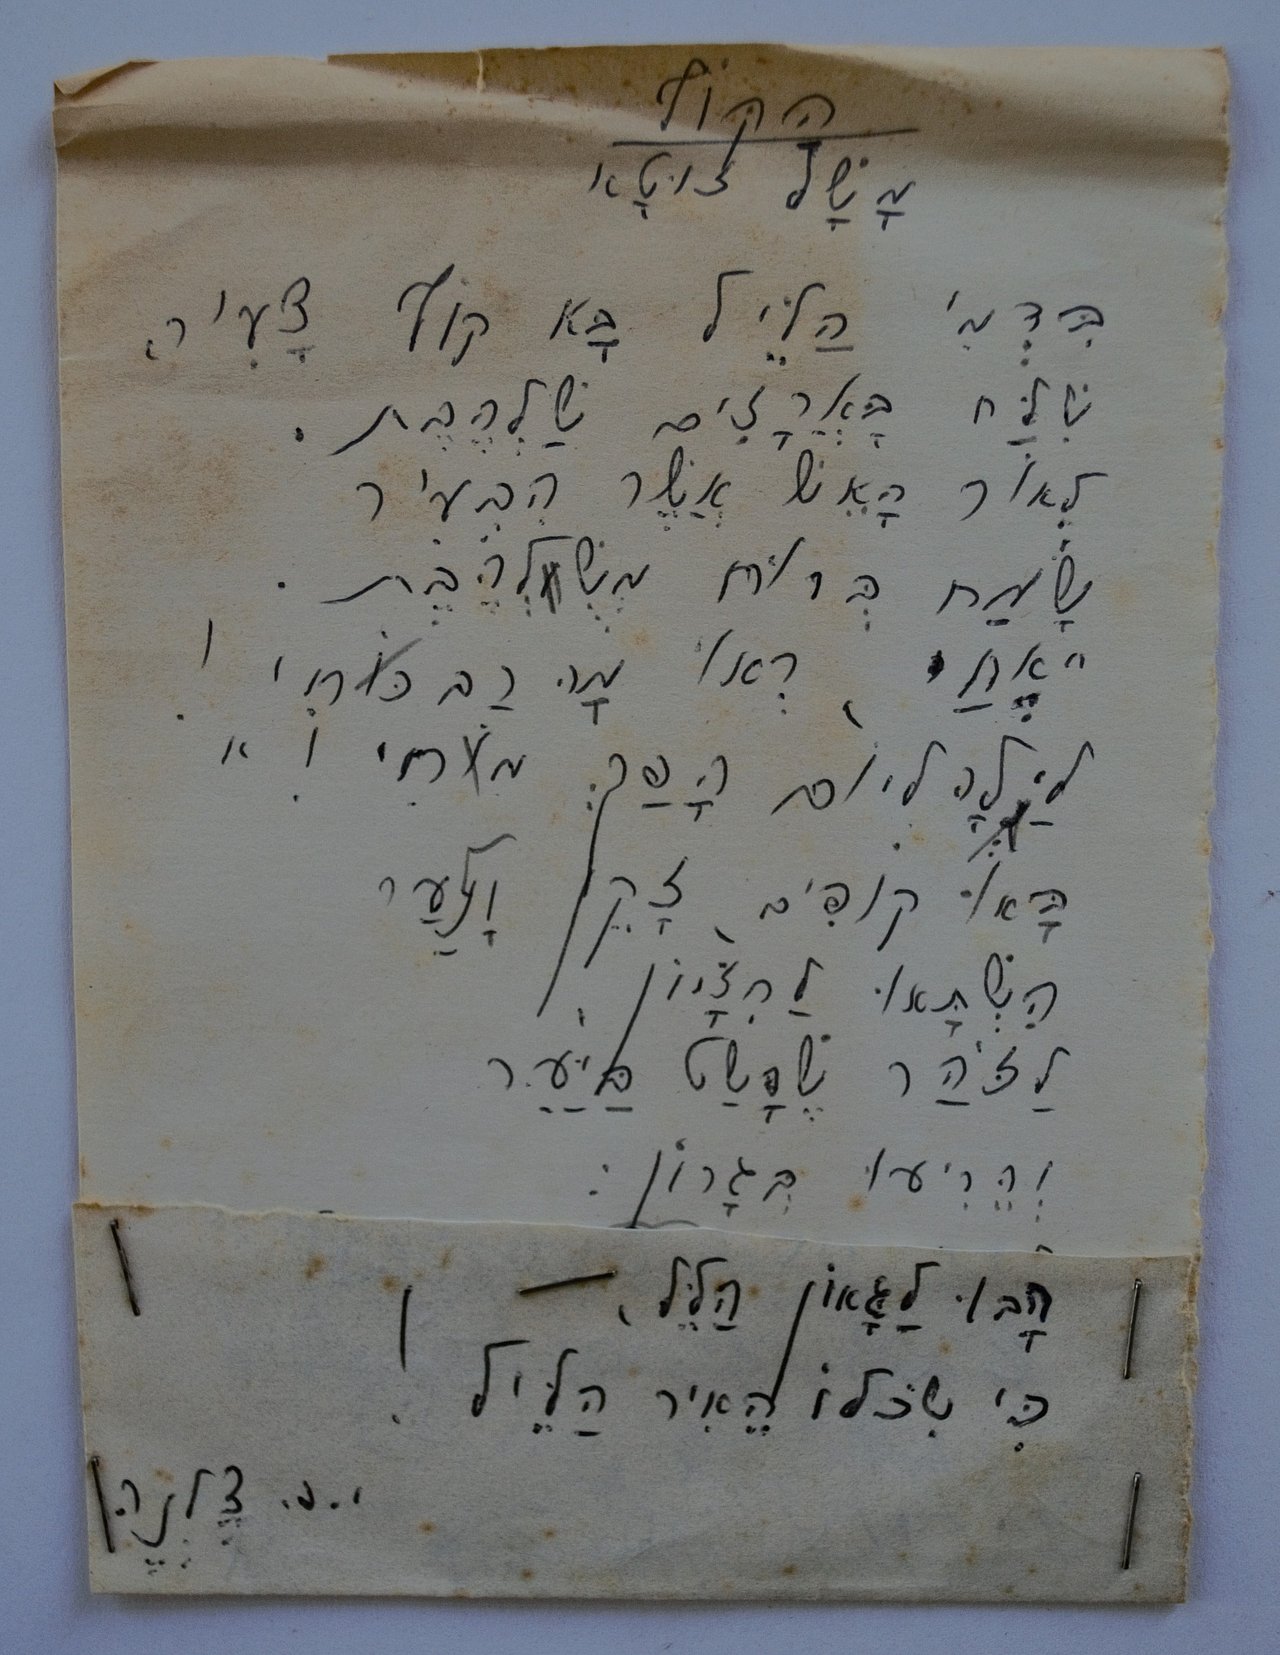 הַקּוֹף
מָשָׁל זוּטָא
בִּדְמִי הַלֵּיל בָּא קוֹף צָעִיר,
שִׁלַּח בָּאֲרָזִים שַׁלְהֶבֶת.
לְאוֹר הָאֵשׁ אֲשֶׁר הִבְעִיר
שָׂמַח בְּרוּחַ מְשֻׁלְהֶבֶת.
"אֶחַי, רְאוּ מָה רַב כֹּחִי!
לַיְלָה לְיוֹם הָפַךְ מֹחִי!"
בָּאוּ קוֹפִים, זָקֵן וָנַעַר
הִשְׁתָּאוּ לַחִזָּיוֹן,
לַזֹּהַר שֶׁפָּשַׁט בַּיַּעַר
וְהֵרִיעוּ בְּגָרוֹן:
הָבוּ לַגָּאוֹן הַלֵּל,
כִּי שִׂכְלוֹ הֵאִיר הַלֵּיל!